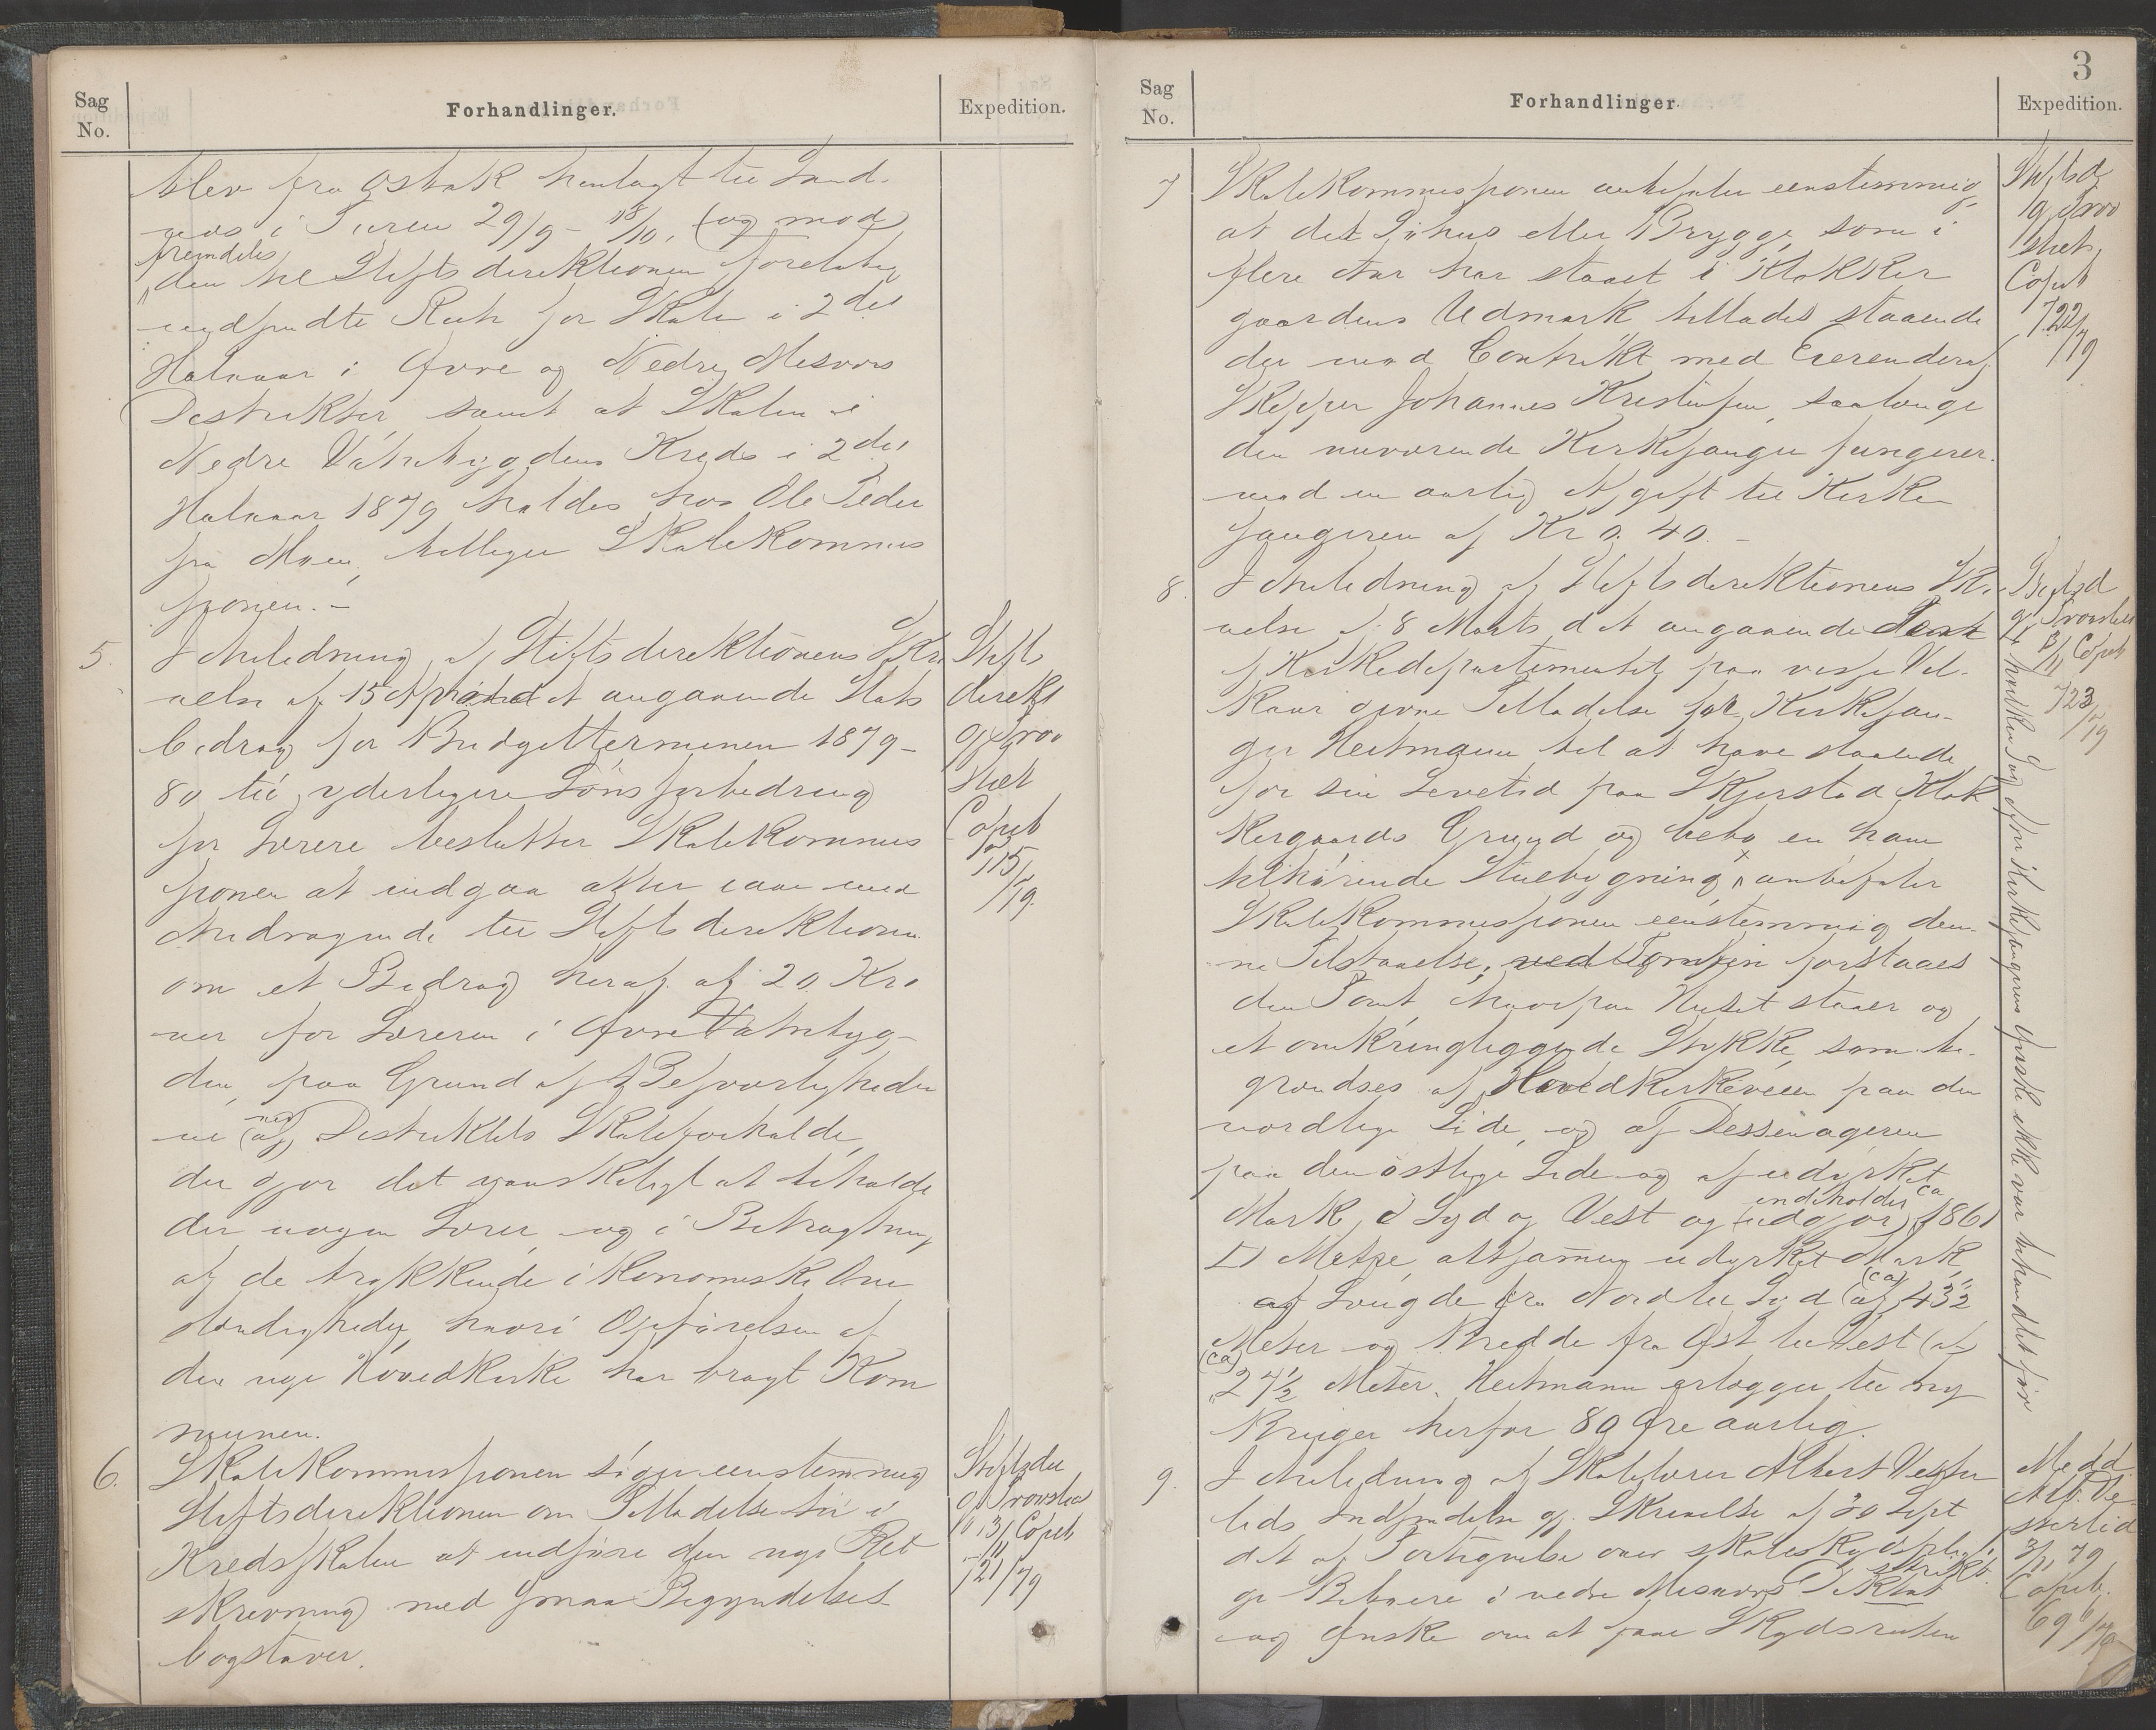 Sag
No.
Forhandlinger.
Expedition.
blev fra Østvik henlagt til Sand-
nes i Turen 29/9 - 18/10, (og mod
fremdeles
den til Stiftsdirektionen foreløbig
indsendte Rute for Skolen i 2det
Halvaar i Øvre og Nedre Misvær
Destrikter, samt at Skolen i
Nedre Vatnbygdens Kreds i 2det
Halvaar 1879 holdes hos Ole Peder
sen Moen, billiger Skolekommis
sionen. -
5.
I Anledning af Stiftsdirektionens Skri
velse af 15 April d. A. angaaende Stats
bidrag for Budgetterminen 1879-
80 til yderligere Lønsforbedring
for Lærere beslutter Skolekommis
sionen at indgaa atter med
Andragende til Stiftsdirektionen
om et Bidrag heraf af 20 Kro
ner for Læreren i Øvre Vatnbyg-
den, paa Grund af Besværligheder
ne ved (af) Destriktets Skoleforholde,
der gjør det vanskeligt at beholde
der nogen Lærer, og i Betragtning
af de trykkende økonomiske Om
stændigheder, hvori Opførelsen af
den nye Hovedkirke har bragt Kom
munen.
Stifts
direkt
gj. Prov
stiet
Copieb
715/
/79.
6.
Skolekommissionen søger eenstemmig
Stiftsdirektionen om Tilladelse til i
Kredsskolen at indføre den nye Ret
skrivning med smaa Begyndelses
bogstaver.
Stiftsdir
gj. Provstiet
13/11 Copieb
721/79
3
Sag
No.
Forhandlinger
Expedition.
7
Skolekommissionen anbefaler eenstemmig,
at det Søhus eller Brygge, som i
flere Aar har staaet i Klokker
gaardens Udmark tillades staaende
der mod Contrakt med Eieren deraf
Skipper Johannes Kristensen, saalænge
den nuværende Kirkesanger fungerer
mod en aarlig Afgift til Kirke
sangeren af Kr 0. 40. -
Stiftsd
gj. Prov
stiet,
Copieb
722/
/79
8.
I Anledning af Stiftsdirektionens Skri
velse af 8 Marts d. A. angaaende
af Kirkedepartementet paa visse Vil-
kaar given Tilladelse for Kirkesan-
ger Heitmann til at have staaende
for sin Levetid paa Skjerstad Klok
kergaards Grund og bebo en ham
tilhørende Stuebygning, x anbefaler
Skolekommissionen eenstemmig den-
ne Tilstaaelse; ved Tomten forstaaes
den Tomt, hvorpaa Huset staaer og
et omkringliggende Stykke, som be-
grændses af Hovedkirkeveien paa den
nordlige Side, og af
paa den østlige Side og af udyrket
Mark, i Syd og Vest og (udgjør) indeholder ca 1861
□ Metre, altsammen udyrket Mark,
af Længde fra Nord til Syd (af) (ca) 43½
Meter og Bredde fra Øst til Vest (af
(ca) 27½ Meter. Heitmann erlægger til ny
Bruger herfor 80 Øre aarlig.
Stiftsd
gj. Provstiet
13/11 Copieb
723
/79
x hvilken Sag efter Kirkesangerens Ønske ikke var behandlet før
9.
I Anledning af Skolelærer Albert Vester
lids Indsendelse gj. Skrivelse af 30 Sept
d. A. af Fortegnelse over skoleskydspligti
ge Beboere i nedre Misvær Distrikt
og Ønske om at faae Skydsruten
Medd.
Alb. Ve
sterlid
3/11 79
Copieb.
696/79